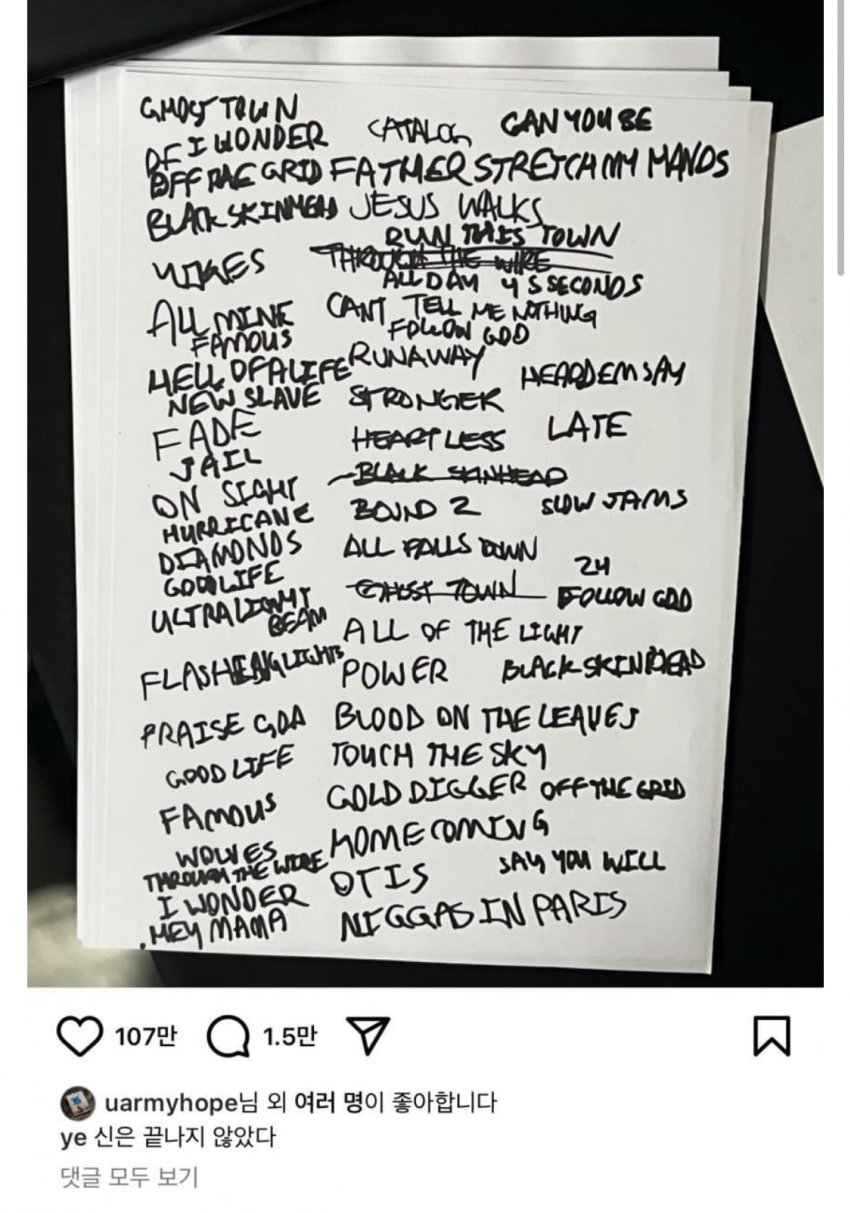 GHOST TOWN
OF I WONDER CATALOG CAN YOU BE
OFF THE GRID FATHER STRETCH MY HANDS
BLACK SKINHEAD JESUS WALKS
RUN THIS TOWN
YIKES THROUGH THE WIRE
ALL DAY 4 5 SECONDS
ALL MINE CANT TELL ME NOTHING
FAMOUS FOLLOW GOD
HELL OF A LIFE RUNAWAY HEARD EM SAY
NEW SLAVE STRONGER
FADE HEARTLESS LATE
JAIL BLACK SKINHEAD
ON SIGHT BOUND 2 SLOW JAMS
HURRICANE
DIAMONDS ALL FALLS DOWN
GOOD LIFE GHOST TOWN 24
ULTRALIGHT FOLLOW GOD
BEAM ALL OF THE LIGHT
FLASHING LIGHTS POWER BLACK SKINHEAD
PRAISE GOD BLOOD ON THE LEAVES
GOOD LIFE TOUCH THE SKY
FAMOUS GOLD DIGGER OFF THE GRID
WOLVES HOMECOMING
THROUGH THE WIRE OTIS SAY YOU WILL
I WONDER
HEY MAMA NIGGAS IN PARIS
107만 1.5만
uarmyhope님 외 여러 명이 좋아합니다
ye 신은 끝나지 않았다
댓글 모두 보기